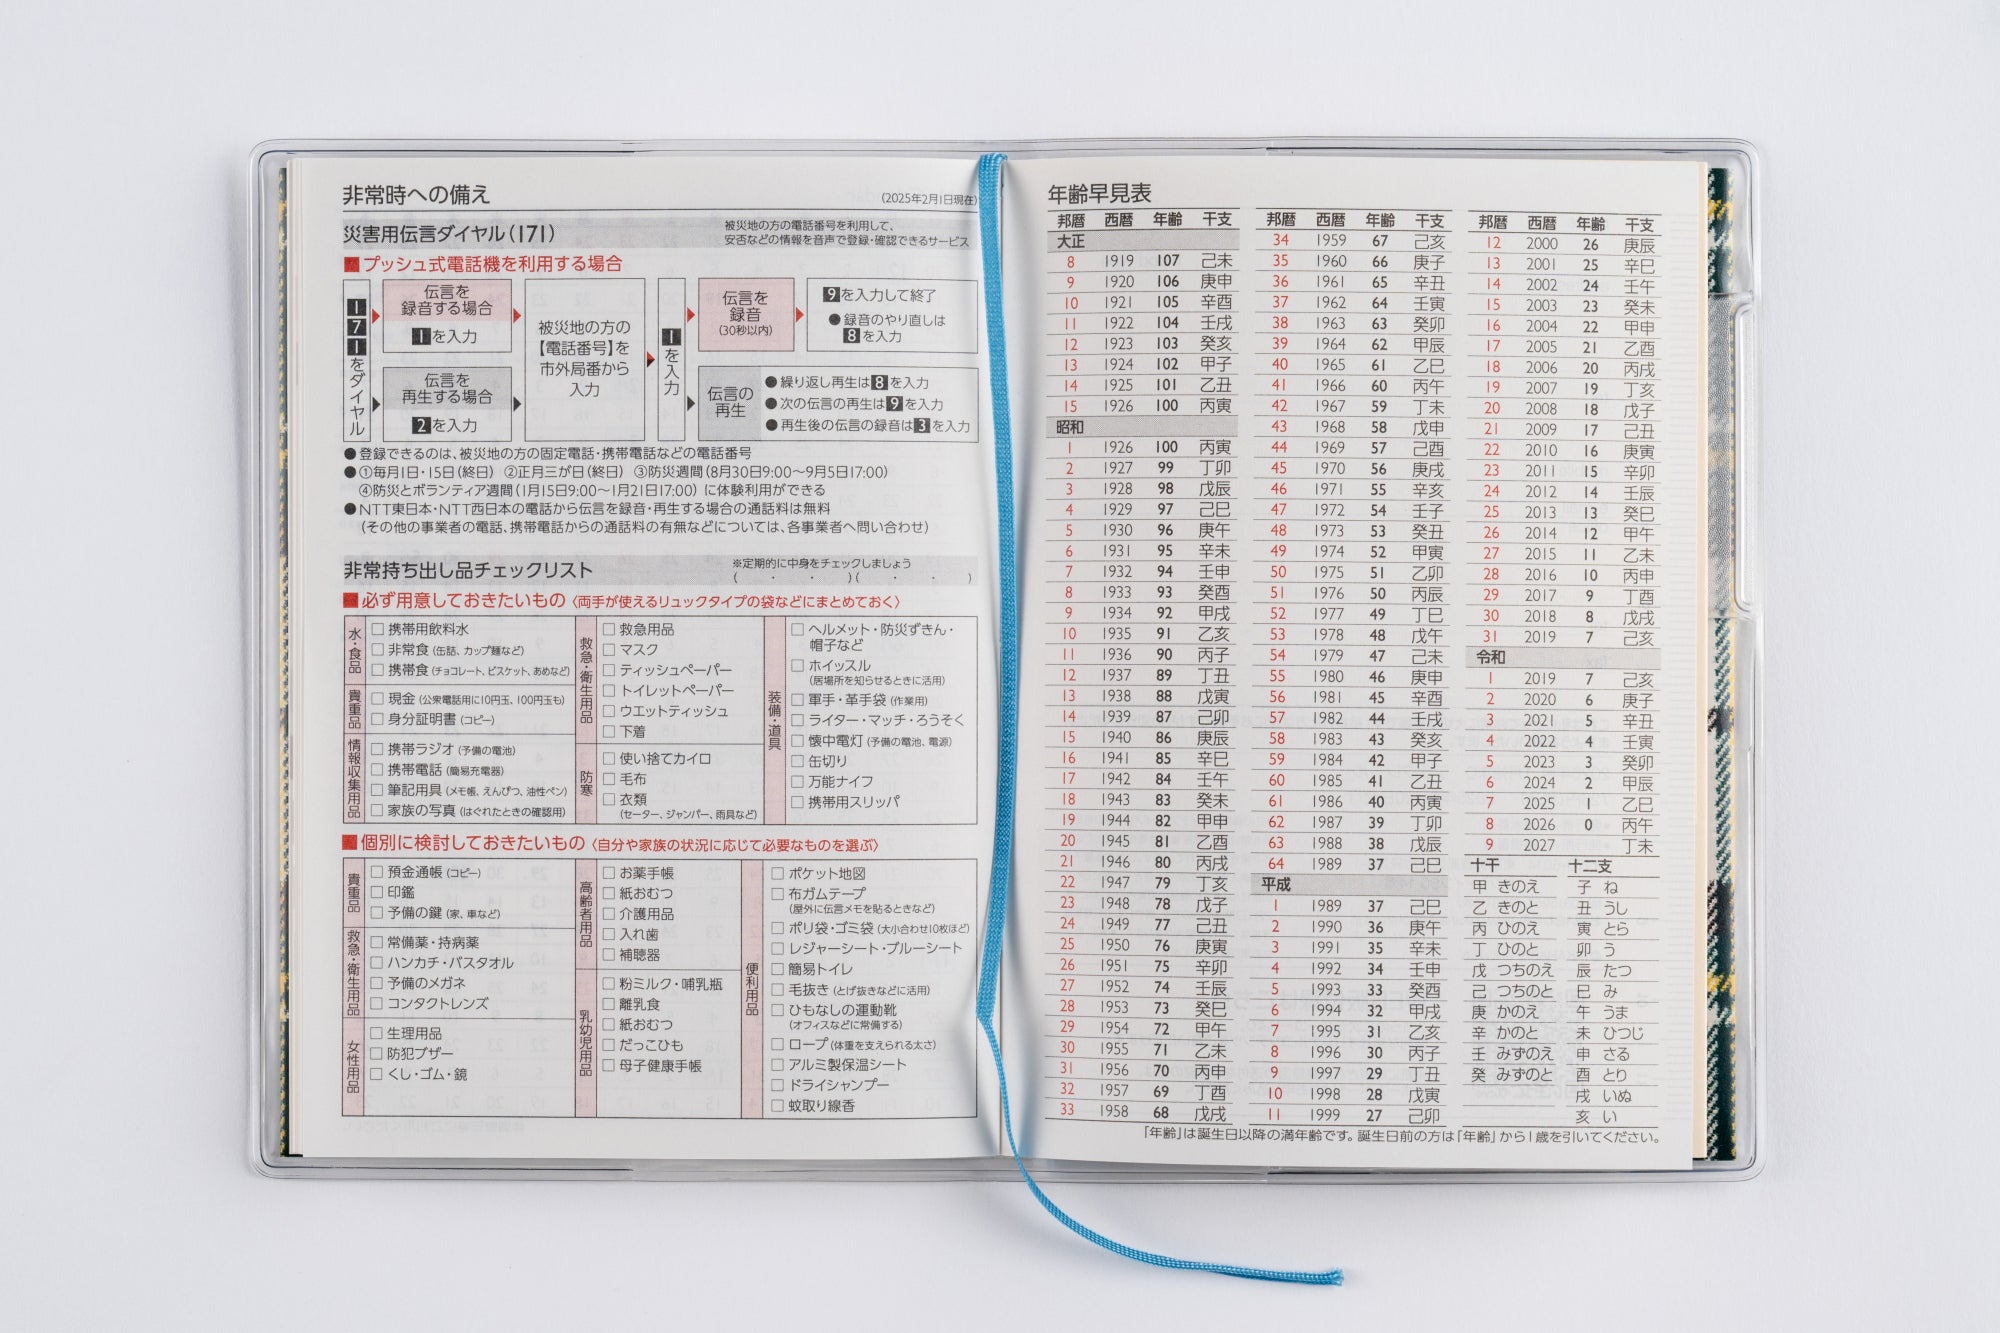 非常時への備え
(2025年2月1日現在)
災害用伝言ダイヤル(171)
被災地の方の電話番号を利用して、
安否などの情報を音声で登録・確認できるサービス
■プッシュ式電話機を利用する場合
171をダイヤル
伝言を
録音する場合
1を入力
伝言を
再生する場合
2を入力
被災地の方の
【電話番号】を
市外局番から
入力
1を入力
伝言を
録音
(30秒以内)
9を入力して終了
●録音のやり直しは
8を入力
伝言の
再生
●繰り返し再生は8を入力
●次の伝言の再生は9を入力
●再生後の伝言の録音は3を入力
●登録できるのは、被災地の方の固定電話・携帯電話などの電話番号
●①毎月1日・15日(終日) ②正月三が日(終日) ③防災週間(8月30日9:00〜9月5日17:00)
④防災とボランティア週間(1月15日9:00〜1月21日17:00) に体験利用ができる
●NTT東日本・NTT西日本の電話から伝言を録音・再生する場合の通話料は無料
(その他の事業者の電話、携帯電話からの通話料の有無などについては、各事業者へ問い合わせ)
非常持ち出し品チェックリスト
※定期的に中身をチェックしましょう
( ・ ・ )( ・ ・ )
■必ず用意しておきたいもの〈両手が使えるリュックタイプの袋などにまとめておく〉
水・食品
□携帯用飲料水
□非常食(缶詰、カップ麺など)
□携帯食(チョコレート、ビスケット、あめなど)
貴重品
□現金(公衆電話用に10円玉、100円玉も)
□身分証明書(コピー)
情報収集用品
□携帯ラジオ(予備の電池)
□携帯電話(簡易充電器)
□筆記用具(メモ帳、えんぴつ、油性ペン)
□家族の写真(はぐれたときの確認用)
救急・衛生用品
□救急用品
□マスク
□ティッシュペーパー
□トイレットペーパー
□ウエットティッシュ
□下着
防寒
□使い捨てカイロ
□毛布
□衣類
(セーター、ジャンパー、雨具など)
装備・道具
□ヘルメット・防災ずきん・
帽子など
□ホイッスル
(居場所を知らせるときに活用)
□軍手・革手袋(作業用)
□ライター・マッチ・ろうそく
□懐中電灯(予備の電池、電源)
□缶切り
□万能ナイフ
□携帯用スリッパ
■個別に検討しておきたいもの〈自分や家族の状況に応じて必要なものを選ぶ〉
貴重品
□預金通帳(コピー)
□印鑑
□予備の鍵(家、車など)
救急・衛生用品
□常備薬・持病薬
□ハンカチ・バスタオル
□予備のメガネ
□コンタクトレンズ
女性用品
□生理用品
□防犯ブザー
□くし・ゴム・鏡
高齢者用品
□お薬手帳
□紙おむつ
□介護用品
□入れ歯
□補聴器
乳幼児用品
□粉ミルク・哺乳瓶
□離乳食
□紙おむつ
□だっこひも
□母子健康手帳
便利用品
□ポケット地図
□布ガムテープ
(屋外に伝言メモを貼るときなど)
□ポリ袋・ゴミ袋(大小合わせ10枚ほど)
□レジャーシート・ブルーシート
□簡易トイレ
□毛抜き(とげ抜きなどに活用)
□ひもなしの運動靴
(オフィスなどに常備する)
□ロープ(体重を支えられる太さ)
□アルミ製保温シート
□ドライシャンプー
□蚊取り線香
年齢早見表
邦暦 西暦 年齢 干支
大正
8 1919 107 己未
9 1920 106 庚申
10 1921 105 辛酉
11 1922 104 壬戌
12 1923 103 癸亥
13 1924 102 甲子
14 1925 101 乙丑
15 1926 100 丙寅
昭和
1 1926 100 丙寅
2 1927 99 丁卯
3 1928 98 戊辰
4 1929 97 己巳
5 1930 96 庚午
6 1931 95 辛未
7 1932 94 壬申
8 1933 93 癸酉
9 1934 92 甲戌
10 1935 91 乙亥
11 1936 90 丙子
12 1937 89 丁丑
13 1938 88 戊寅
14 1939 87 己卯
15 1940 86 庚辰
16 1941 85 辛巳
17 1942 84 壬午
18 1943 83 癸未
19 1944 82 甲申
20 1945 81 乙酉
21 1946 80 丙戌
22 1947 79 丁亥
23 1948 78 戊子
24 1949 77 己丑
25 1950 76 庚寅
26 1951 75 辛卯
27 1952 74 壬辰
28 1953 73 癸巳
29 1954 72 甲午
30 1955 71 乙未
31 1956 70 丙申
32 1957 69 丁酉
33 1958 68 戊戌
邦暦 西暦 年齢 干支
34 1959 67 己亥
35 1960 66 庚子
36 1961 65 辛丑
37 1962 64 壬寅
38 1963 63 癸卯
39 1964 62 甲辰
40 1965 61 乙巳
41 1966 60 丙午
42 1967 59 丁未
43 1968 58 戊申
44 1969 57 己酉
45 1970 56 庚戌
46 1971 55 辛亥
47 1972 54 壬子
48 1973 53 癸丑
49 1974 52 甲寅
50 1975 51 乙卯
51 1976 50 丙辰
52 1977 49 丁巳
53 1978 48 戊午
54 1979 47 己未
55 1980 46 庚申
56 1981 45 辛酉
57 1982 44 壬戌
58 1983 43 癸亥
59 1984 42 甲子
60 1985 41 乙丑
61 1986 40 丙寅
62 1987 39 丁卯
63 1988 38 戊辰
64 1989 37 己巳
平成
1 1989 37 己巳
2 1990 36 庚午
3 1991 35 辛未
4 1992 34 壬申
5 1993 33 癸酉
6 1994 32 甲戌
7 1995 31 乙亥
8 1996 30 丙子
9 1997 29 丁丑
10 1998 28 戊寅
11 1999 27 己卯
邦暦 西暦 年齢 干支
12 2000 26 庚辰
13 2001 25 辛巳
14 2002 24 壬午
15 2003 23 癸未
16 2004 22 甲申
17 2005 21 乙酉
18 2006 20 丙戌
19 2007 19 丁亥
20 2008 18 戊子
21 2009 17 己丑
22 2010 16 庚寅
23 2011 15 辛卯
24 2012 14 壬辰
25 2013 13 癸巳
26 2014 12 甲午
27 2015 11 乙未
28 2016 10 丙申
29 2017 9 丁酉
30 2018 8 戊戌
31 2019 7 己亥
令和
1 2019 7 己亥
2 2020 6 庚子
3 2021 5 辛丑
4 2022 4 壬寅
5 2023 3 癸卯
6 2024 2 甲辰
7 2025 1 乙巳
8 2026 0 丙午
9 2027 丁未
十干 十二支
甲 きのえ 子 ね
乙 きのと 丑 うし
丙 ひのえ 寅 とら
丁 ひのと 卯 う
戊 つちのえ 辰 たつ
己 つちのと 巳 み
庚 かのえ 午 うま
辛 かのと 未 ひつじ
壬 みずのえ 申 さる
癸 みずのと 酉 とり
戌 いぬ
亥 い
「年齢」は誕生日以降の満年齢です。誕生日前の方は「年齢」から1歳を引いてください。